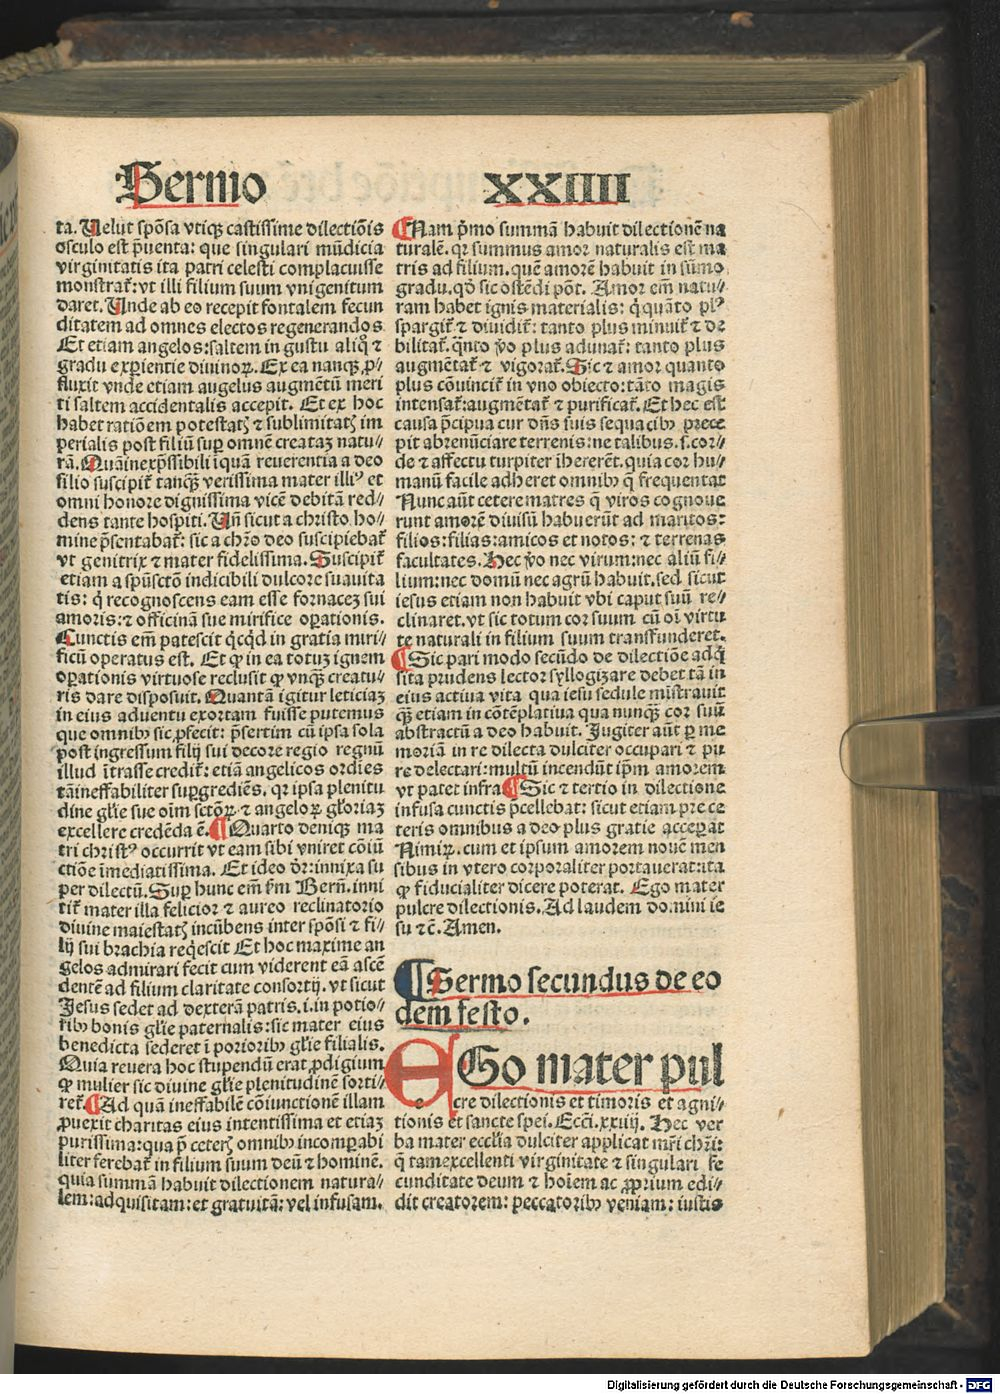 Sermo XXIIII
ta. Uelut spōsa vtiqꝫ castissime dilectiōis
osculo est p̄uenta: que singulari mūdicia
virginitatis ita patri celesti complacuisse
monstrat̄: vt illi filium suum vnigenitum
daret. Unde ab eo recepit fontalem fecun
ditatem ad omnes electos regenerandos
Et etiam angelos: saltem in gustu aliq̊ ⁊
gradu experientie diuinoꝝ. Ex ea nanqꝫ ꝓ⸗
fluxit vnde etiam angelus augmētū meri
ti saltem accidentalis accepit. Et ex hoc
habet ratiōem potestatꝭ ⁊ sublimitatꝭ im
perialis post filiū suꝑ omnē creataꝫ natu⸗
rā. Quāinexp̄ssibili īquā reuerentia a deo
filio suscipit̄ tanqꝫ verissima mater illiꝰ et
omni honore dignissima vicē debitā red⸗
dens tante hospiti. Un̄ sicut a christo ho⸗
mine p̄sentabat̄: sic a chr̄o deo suscipiebat̄
vt genitrix ⁊ mater fidelissima. Suscipit̄
etiam a spūsctō indicibili dulcore suauita
tis: q̄ recognoscens eam esse fornaceꝫ sui
amoris: ⁊ officinā sue mirifice oꝑationis.
Cunctis em̄ patescit q̇cq̇d in gratia miri⸗
ficū operatus est. Et ꝙ in ea totuꝫ ignem
oꝑationis virtuose reclusit ꝙ vnqꝫ creatu⸗
ris dare disposuit. Quantā igitur leticiaꝫ
in eius aduentu exortam fuisse putemus
que omnibꝰ sic ꝓfecit: p̄sertim cū ipsa sola
post ingressum filij sui decore regio regnū
illud ītrasse credit̄: etiā angelicos ordīes
tāineffabiliter suꝑgrediēs, qꝛ ipsa plenitu
dine gl̄ie sue oīm sctōꝝ ⁊ angeloꝝ gl̄oriaꝫ
excellere credēda ē. ¶ Quarto deniqꝫ ma
tri christꝰ occurrit vt eam sibi vniret cōiū
ctiōe īmediatissima. Et ideo dr̄: innixa su
per dilectū. Suꝑ hunc em̄ fm Bern̄. inni
tit̄ mater illa felicior ⁊ aureo reclinatorio
diuine maiestatꝭ incūbens inter spōsi ⁊ fi⸗
lij sui brachia req̇escit Et hoc maxime an
gelos admirari fecit cum viderent eā ascē
dentē ad filium claritate consortij. vt sicut
Jesus sedet ad dexterā patris. i. in potio⸗
ribꝰ bonis gl̄ie paternalis: sic mater eius
benedicta sederet ī potioribꝰ gl̄ie filialis.
Quia reuera hoc stupendū erat ꝓdigium
ꝙ mulier sic diuine gl̄ie plenitudinē sorti⸗
ret̄. ¶ Ad quā ineffabilē cōiunctionē illam
ꝓuexit charitas eius intentissima et etiaꝫ
purissima: qua p̄ ceterꝭ omnibꝰ incomꝑabi
liter ferebat̄ in filium suum deū ⁊ hominē.
quia summā habuit dilectionem natura⸗
lem: adquisitam: et gratuitā: vel infusam.
¶ Nam p̄mo summā habuit dilectionē na
turalē. qꝛ summus amor naturalis est ma
tris ad filium. quē amorē habuit in sūmo
gradu. qđ sic ostēdi pōt. Amor em̄ natu⸗
ram habet ignis materialis: q̇ quāto plꝰ
spargit̄ ⁊ diuidit̄: tanto plus minuit̄ ⁊ de
bilitat̄. q̄nto v̊o plus adunat̄: tanto plus
augmētat̄ ⁊ vigorat̄. Sic ⁊ amor quanto
plus cōuincit̄ in vno obiecto: tāto magis
intensat̄: augmētat̄ ⁊ purificat̄. Et hec est
causa p̄cipua cur dn̄s suis sequacibꝰ prece
pit abrenūciare terrenis: ne talibus. s. cor⸗
de ⁊ affectu turpiter īhererēt. quia cor hu⸗
manū facile adheret omnibꝰ q̄ frequentat
Nunc aūt cetere matres q̄ viros cognoue
runt amorē diuisū habuerūt ad maritos:
filios: filias: amicos et notos: ⁊ terrenas
facultates. Hec v̊o nec virum: nec aliū fi⸗
lium: nec domū nec agrū habuit. sed sicut
iesus etiam non habuit vbi caput suū re⸗
clinaret. vt sic totum cor suum cū oī virtu
te naturali in filium suum transfunderet.
¶ Sic pari modo secūdo de dilectiōe adq̇
sita prudens lector syllogizare debet tā in
eius actiua vita qua iesu sedule mīstrauit
qꝫ etiam in cōtēplatiua qua nunqꝫ cor suū
abstractū a deo habuit. Jugiter aūt ꝑ me
moriā in re dilecta dulciter occupari ⁊ pu
re delectari: multū incendūt ip̄m amorem
vt patet infra ¶ Sic ⁊ tertio in dilectione
infusa cunctis p̄cellebat: sicut etiam pre ce
teris omnibus a deo plus gratie acceperat
Nimiꝝ. cum et ipsum amorem nouē men
sibus in vtero corporaliter portauerat: ita
ꝙ fiducialiter dicere poterat. Ego mater
pulcre dilectionis. Ad laudem domini ie
su ⁊c̄. Amen.
¶ Sermo secundus de eo
dem festo.
EGo mater pul
cre dilectionis et timoris et agni⸗
tionis et sancte spei. Ecc̄i. xxiiij. Hec ver
ba mater eccl̄ia dulciter applicat mr̄i chr̄i:
q̄ tam excellenti virginitate ⁊ singulari fe
cunditate deum ⁊ hoīem ac ꝓprium edi⸗
dit creatorem: peccatoribꝰ veniam: iustis
Digitalisierung gefördert durch die Deutsche Forschungsgemeinschaft - DFG